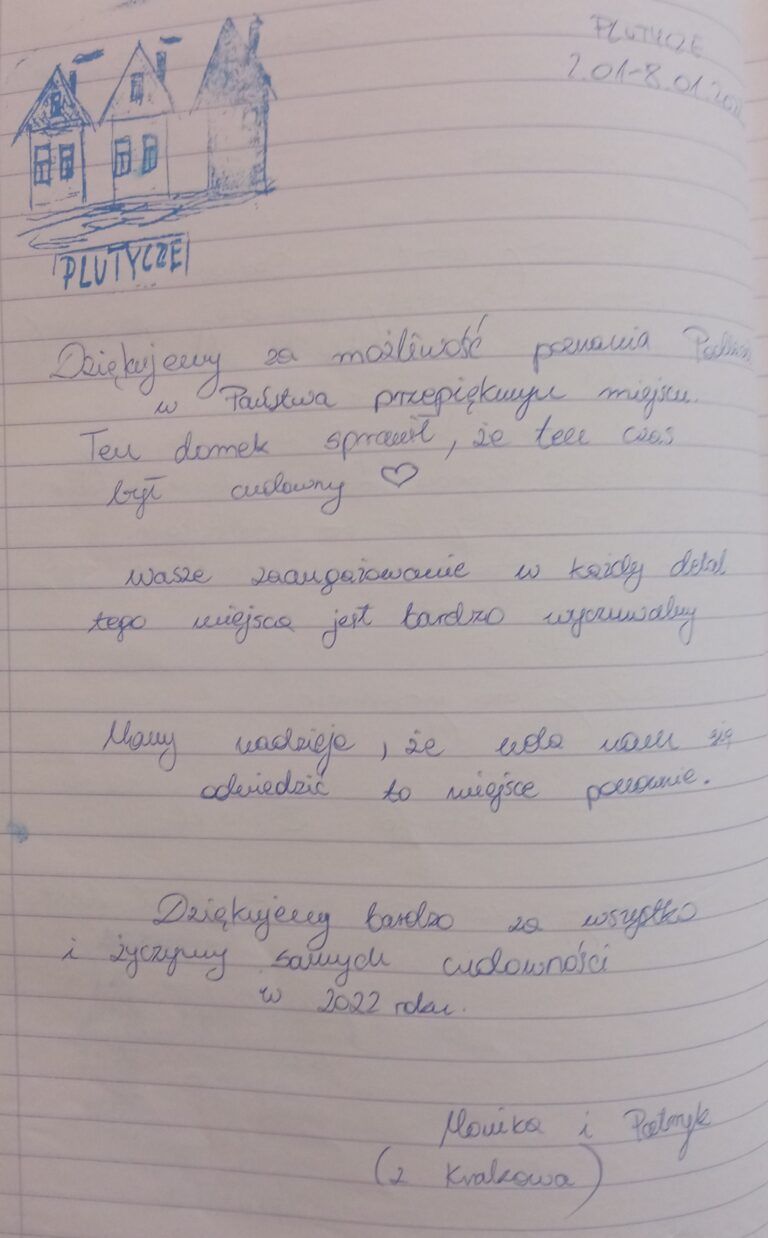 PLUTYCZE
2.01-8.01.2022
PLUTYCZE
Dziękujemy za możliwość poznania
w Państwa przepięknym miejscu.
Ten domek sprawił, że ten czas
był cudowny ♡
Wasze zaangażowanie w każdy detal
tego miejsca jest bardzo wyczuwalny
Mamy nadzieję, że uda nam się
odwiedzić to miejsce ponownie.
Dziękujemy bardzo za wszystko
i życzymy samych cudowności
w 2022 roku.
Monika i Patryk
(z Krakowa)